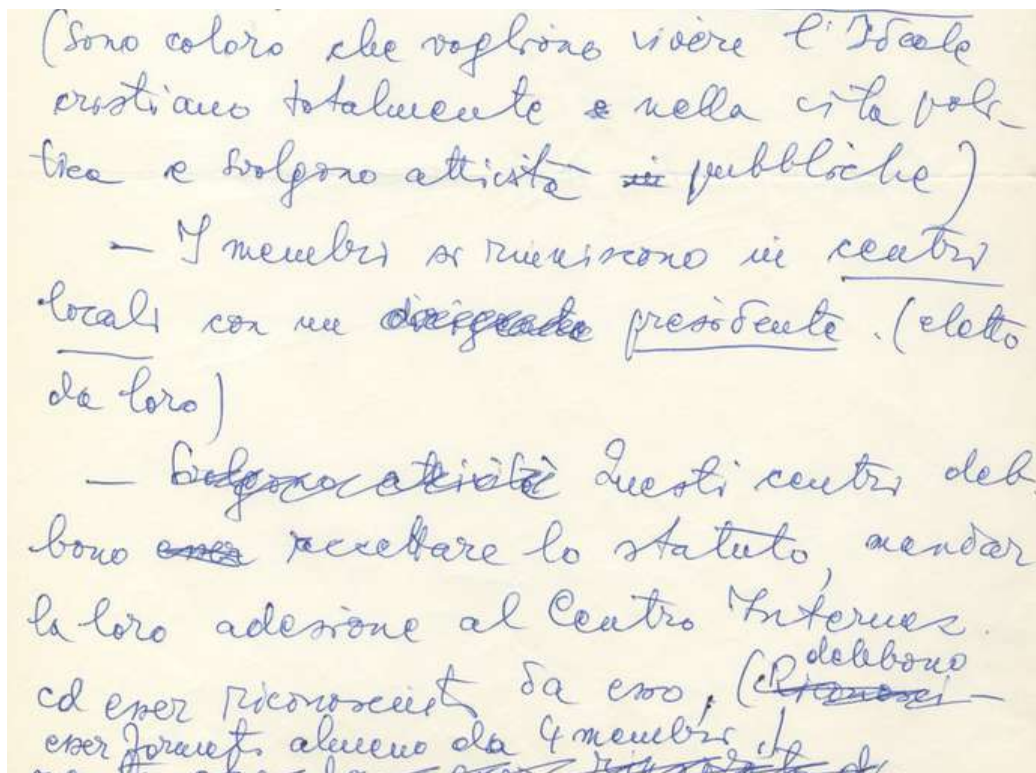 (Sono coloro che vogliono vivere l'Ideale
cristiano totalmente e nella vita poli-
tica e svolgono attività in pubbliche)
— I membri si riuniscono in centri
locali con un dirigente presidente. (eletto
da loro)
— Svolgono attività Questi centri deb-
bono esser accettare lo statuto, mandar
la loro adesione al Centro Internaz.
ed esser riconosciuti da esso. (debbono
esser formati almeno da 4 membri)